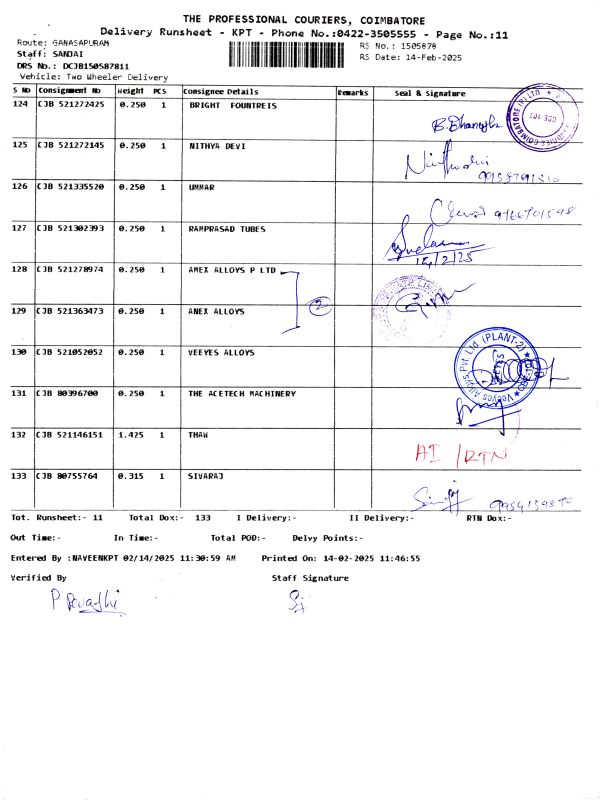 THE PROFESSIONAL COURIERS, COIMBATORE
Delivery Runsheet - KPT - Phone No.:0422-3505555 - Page No.:11
Route: GANASAPURAM
RS No.: 1505878
Staff: SANJAI
RS Date: 14-Feb-2025
DRS No.: DCJB150587811
Vehicle: Two Wheeler Delivery
S No Consignment No Weight PCS Consignee Details Remarks Seal & Signature
124 CJB 521272425 0.250 1 BRIGHT FOUNTREIS
125 CJB 521272145 0.250 1 NITHYA DEVI
126 CJB 521335520 0.250 1 UMMAR
127 CJB 521302393 0.250 1 RAMPRASAD TUBES
128 CJB 521278974 0.250 1 AMEX ALLOYS P LTD
2
129 CJB 521363473 0.250 1 ANEX ALLOYS
130 CJB 521052052 0.250 1 VEEYES ALLOYS
Veeyes Alloys Pvt Ltd (PLANT-2)
131 CJB 80396700 0.250 1 THE ACETECH MACHINERY
132 CJB 521146151 1.425 1 THAW
AI / RTN
133 CJB 80755764 0.315 1 SIVARAJ
Tot. Runsheet:- 11 Total Dox:- 133 I Delivery:- II Delivery:- RTN Dox:-
Out Time:- In Time:- Total POD:- Delvy Points:-
Entered By :NAVEENKPT 02/14/2025 11:30:59 AM Printed On: 14-02-2025 11:46:55
Verified By Staff Signature